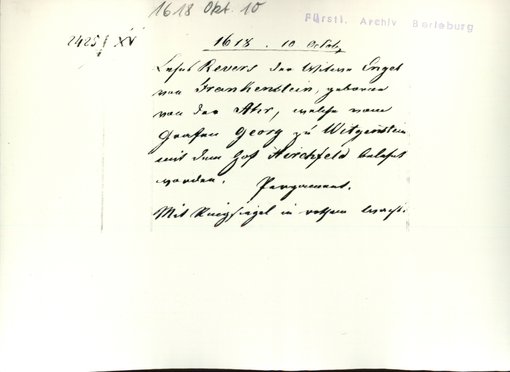 1618 Okt. 10
Fürstl. Archiv Berleburg
2425 / XV
1618. 10 October
Lehns Revers der Witwe Engel
von Frankenstein, geboren
von der Ahr, welche vom
Grafen Georg zu Witgenstein
mit dem Hof Hirchfeld belehnt
worden. Pergament.
Mit Ringsiegel in rothem Wachs.